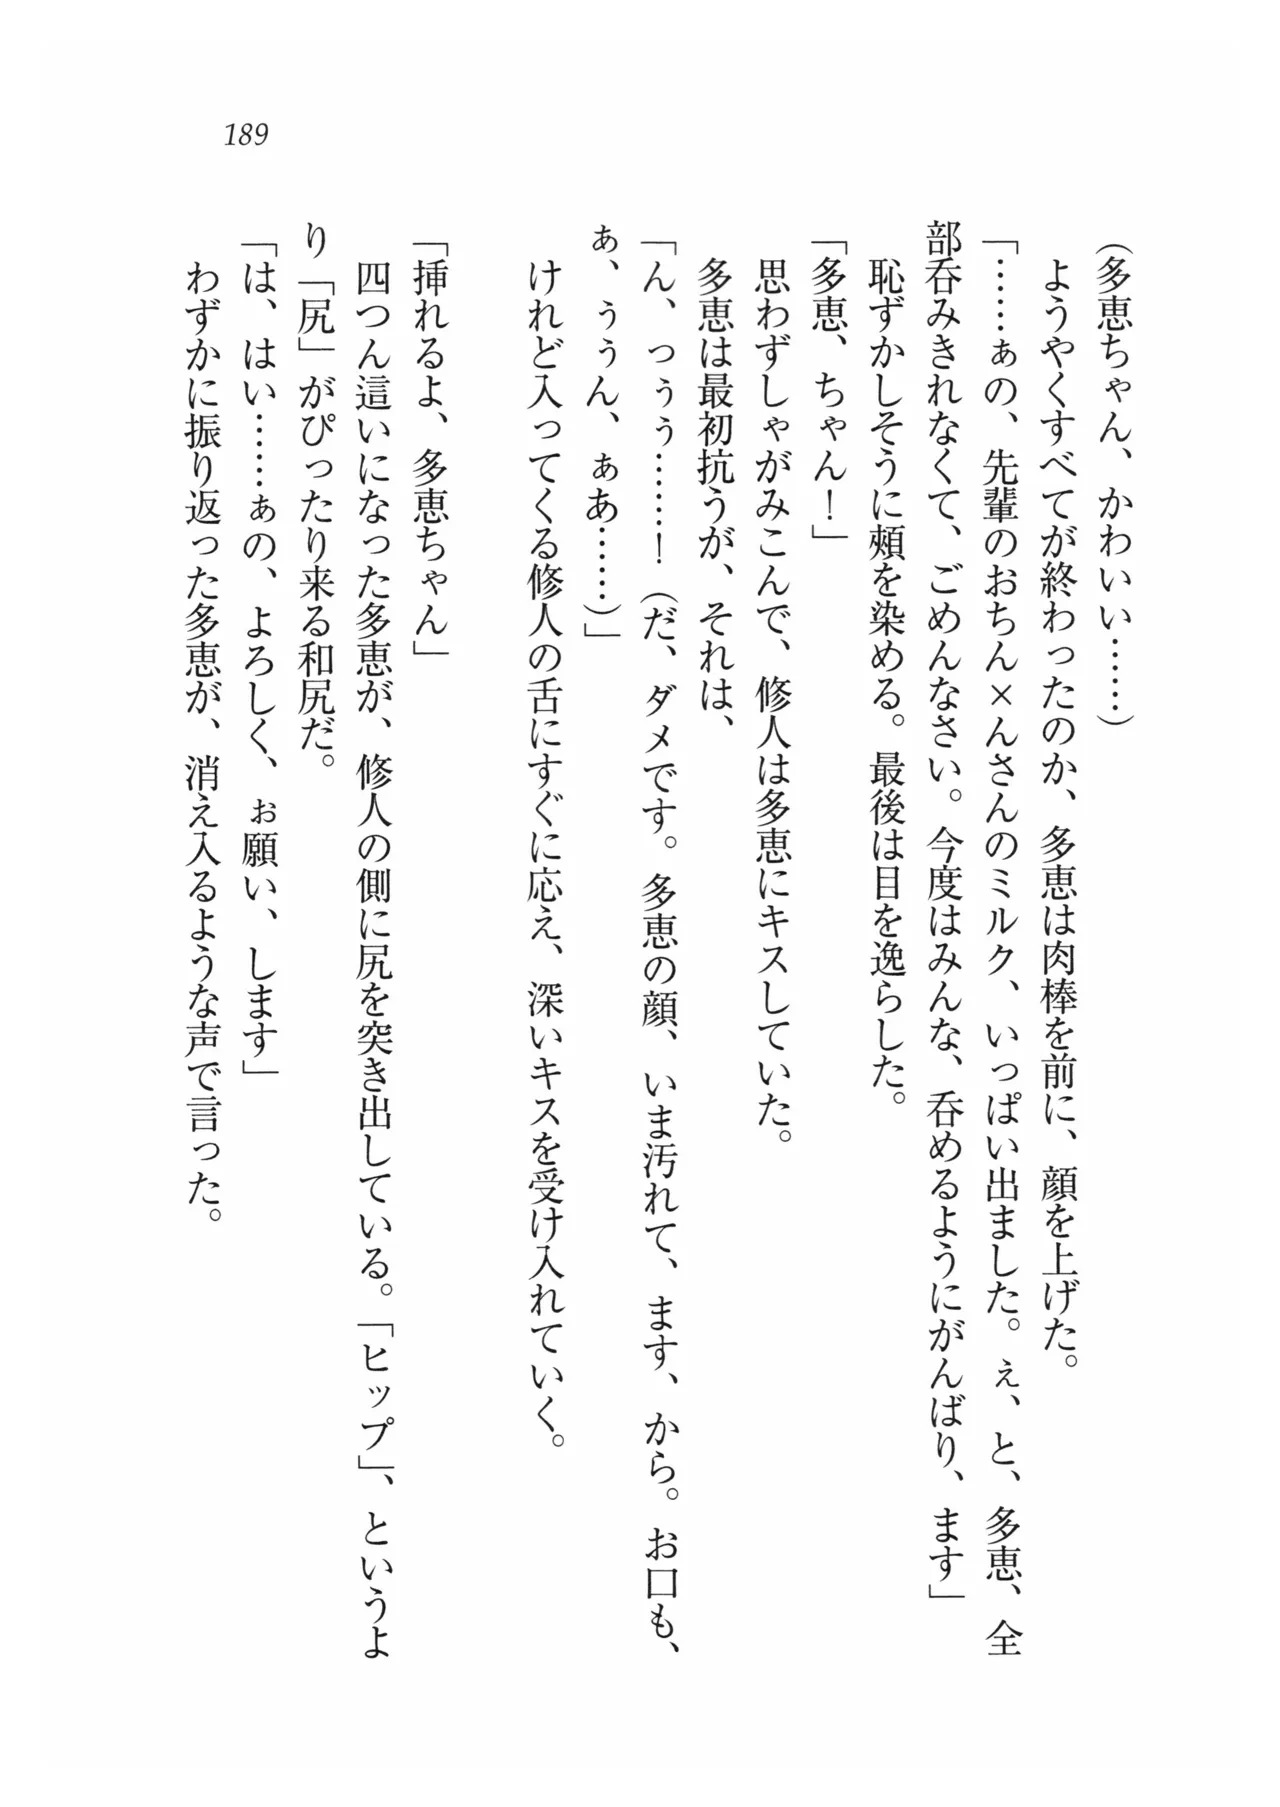 189
（多恵ちゃん、かわいい……）
ようやくすべてが終わったのか、多恵は肉棒を前に、顔を上げた。
「……ぁの、先輩のおちん×んさんのミルク、いっぱい出ました。ぇ、と、多恵、全
部呑みきれなくて、ごめんなさい。今度はみんな、呑めるようにがんばり、ます」
恥ずかしそうに頰を染める。最後は目を逸らした。
「多恵、ちゃん！」
思わずしゃがみこんで、修人は多恵にキスしていた。
多恵は最初抗うが、それは、
「ん、っぅぅ………！（だ、ダメです。多恵の顔、いま汚れて、ます、から。お口も、
ぁ、ぅぅん、ぁあ……）」
けれど入ってくる修人の舌にすぐに応え、深いキスを受け入れていく。
「挿れるよ、多恵ちゃん」
四つん這いになった多恵が、修人の側に尻を突き出している。「ヒップ」、というよ
り「尻」がぴったり来る和尻だ。
「は、はい……ぁの、よろしく、ぉ願い、します」
わずかに振り返った多恵が、消え入るような声で言った。